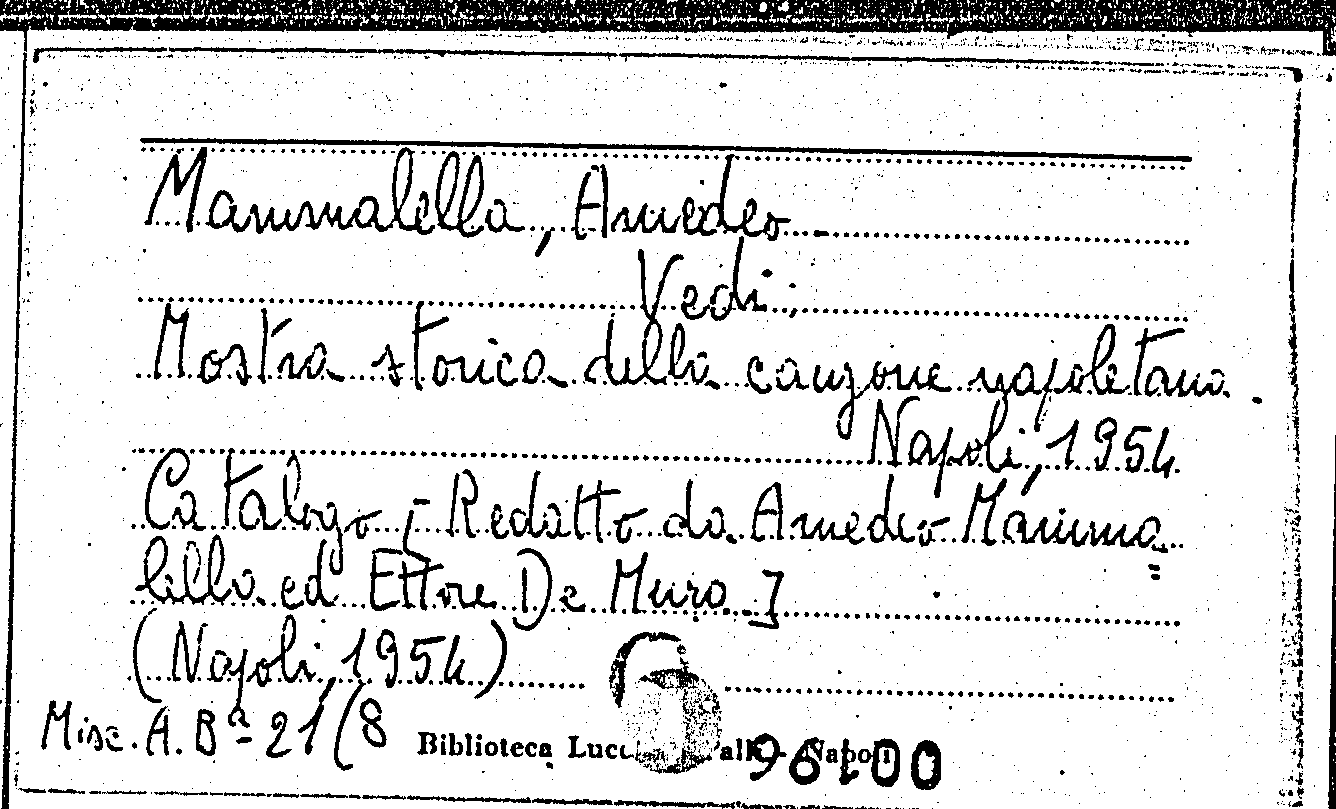 Mammalella, Amedeo -
Vedi:
Mostra storica della canzone napoletana.
Napoli, 1954
Catalogo ; - Redatto da Amedeo Mamma=
lella ed Ettore De Muro.]
(Napoli, 1954)
Misc. A. Bª 21/(8
Biblioteca - Napoli
96100